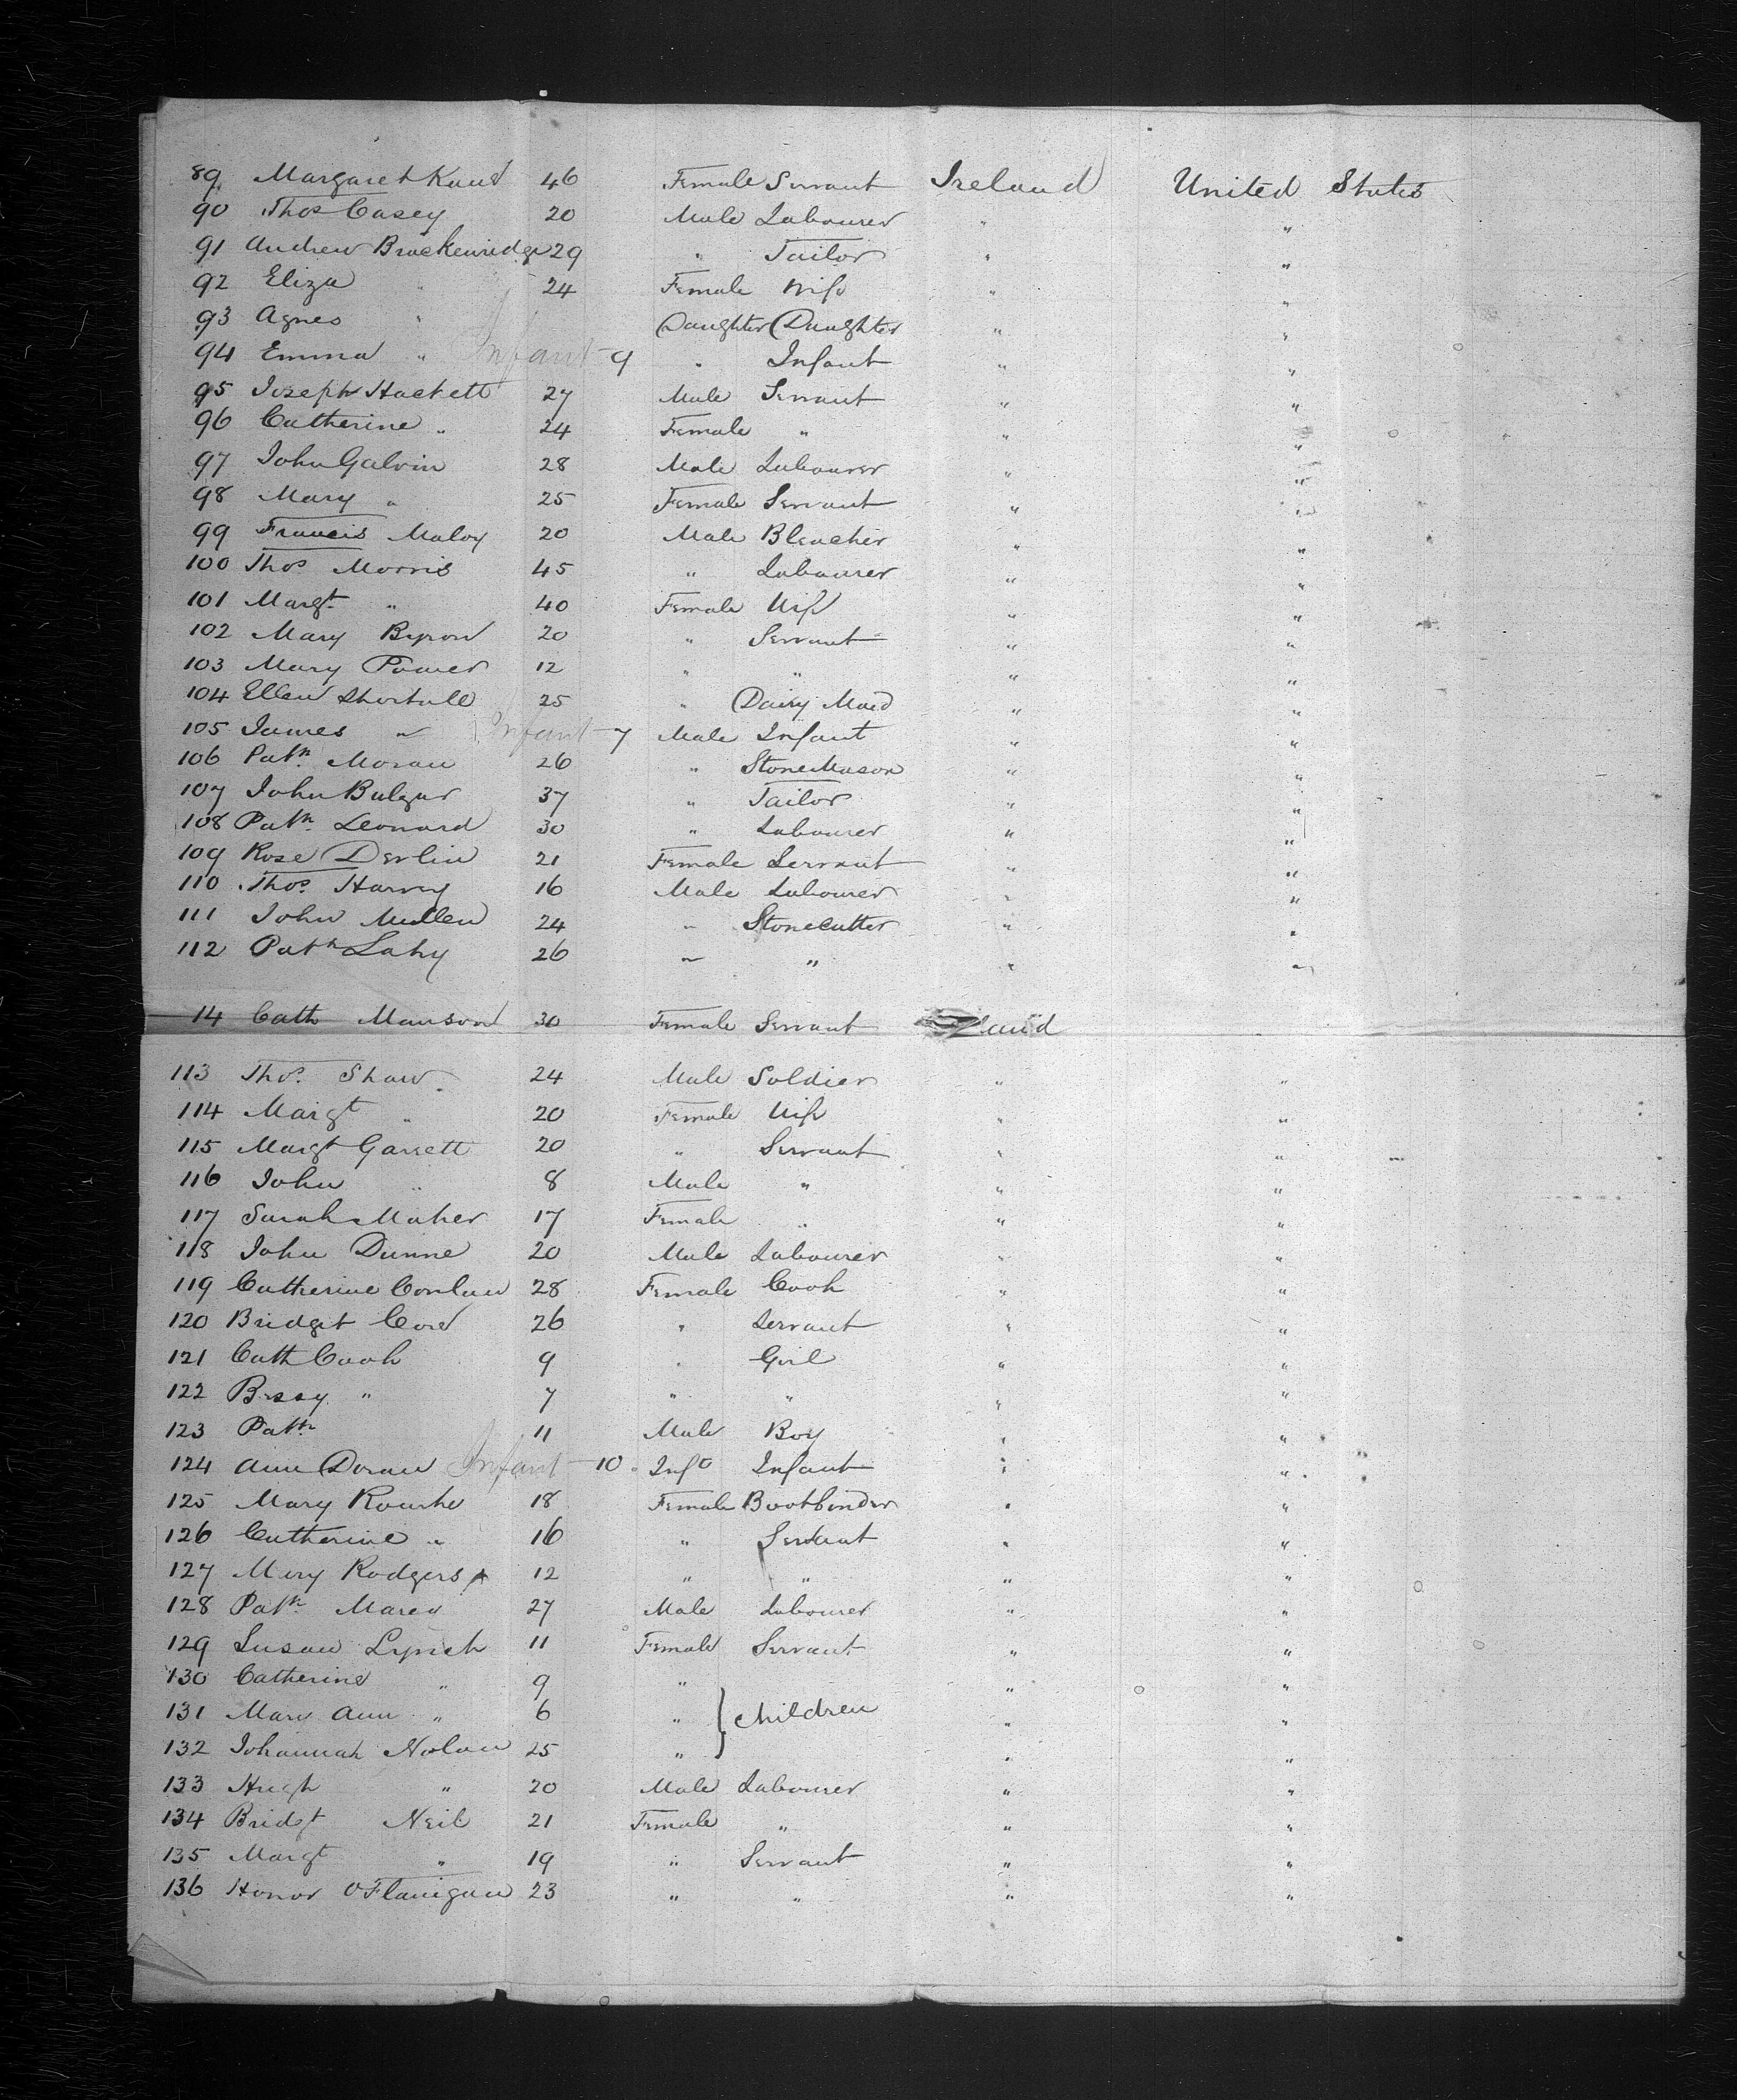 89 Margaret Kane 46 Female Servant Ireland United States
90 Thos Casey 20 Male Labourer " "
91 Andrew Brackenridge 29 " Tailor " "
92 Eliza " 24 Female Wife " "
93 Agnes " Daughter Daughter " "
94 Emma " Infant - 9 " Infant " "
95 Joseph Hackett 27 Male Servant " "
96 Catherine " 24 Female " " "
97 John Galvin 28 Male Labourer " "
98 Mary " 25 Female Servant " "
99 Francis Maloy 20 Male Bleacher " "
100 Thos Morris 45 " Labourer " "
101 Margt " 40 Female Wife " "
102 Mary Byron 20 " Servant " "
103 Mary Power 12 " " " "
104 Ellen Shortall 25 " Dairy Maid " "
105 James " Infant - 7 Male Infant " "
106 Patk Moran 26 " Stone Mason " "
107 John Bulgar 37 " Tailor " "
108 Patk Leonard 30 " Labourer " "
109 Rose Devlin 21 Female Servant " "
110 Thos Harvey 16 Male Labourer " "
111 John Mullen 24 " Stonecutter " "
112 Patk Lahy 26 " " " "
14 Cath Manson 30 Female Servant
113 Thos Shaw 24 Male Soldier " "
114 Margt " 20 Female Wife " "
115 Margt Garrett 20 " Servant " "
116 John " 8 Male " " "
117 Sarah Maher 17 Female " " "
118 John Dunne 20 Male Labourer " "
119 Catherine Conlan 28 Female Cook " "
120 Bridget 26 " Servant " "
121 Cath Cook 9 " Girl " "
122 Bessy " 7 " " " "
123 Patk 11 Male Boy " "
124 Ann Doran Infant - 10 Inft Infant " "
125 Mary Rourke 18 Female Bootbinder " "
126 Catherine " 16 " Servant " "
127 Mary Rodgers 12 " " " "
128 Patk 27 Male Labourer " "
129 Susan Lynch 11 Female Servant " "
130 Catherine " 9 " " "
131 Mary Ann " 6 " } Children " "
132 Johannah Nolan 25 " " "
133 Hugh " 20 Male Labourer " "
134 Bridgt Neil 21 Female " " "
135 Margt " 19 " Servant " "
136 Honor O'Flanigan 23 " " " "